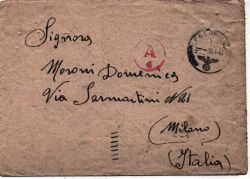 Signora
A
Moroni Domenica
Via Sarmartini N° 21
(Milano)
(Italia)